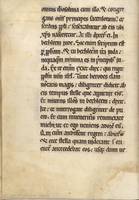 omnis iherosolima cum illo. & congre
gans om̅s principes sacerdotum & scri
bas ppl̅i / sciscitabatur ab eis ubi
xp̅s nasceretur. At illi dixert̅ ei. In
bethleem iude. Sic enim scriptum est per
pph̅am. & tu bethleem terra iuda
nequaquam minima es in principib; iu
da. Ex te enim exiet dux / qui regat
pplm̅ meum isrl̅. Tunc herodes clam
uocatis magis / diligenter didicit ab
eis tempus stelle que apparuit eis.
Et mittens illos in bethleem / dixit.
Ite / & interrogate diligenter de puero.
& cum inueneritis renunciate
michi: ut & ego ueniens adorem eum.
Qui cum audissent regem / abierunt.
& ecce stella quam uiderant in ori
ente antecedebat eos / usq; dum